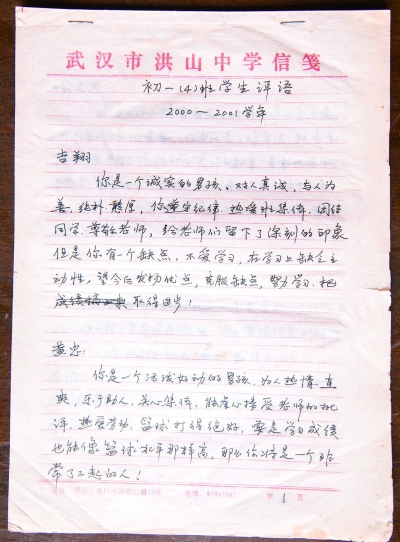 武汉市洪山中学信笺
初一(4)班学生评语
2000—2001学年
吉翔
你是一个诚实的男孩、对人真诚,与人为
善,纯朴憨厚,你遵守纪律,热爱班集体,团结
同学,尊敬老师,给老师们留下了深刻的印象
但是你有一个缺点,不爱学习,在学习上缺乏主
动性,望今后发扬优点,克服缺点,努力学习,把
取得进步!
黄忠:
你是一个活泼好动的男孩,为人热情、直
爽,乐于助人,关心集体,能虚心接受老师的批
评,热爱劳动,篮球打得绝好,要是学习成绩
也能像篮球水平那样高,那么你将是一个非
常了不起的人!
电话: 第 1 页